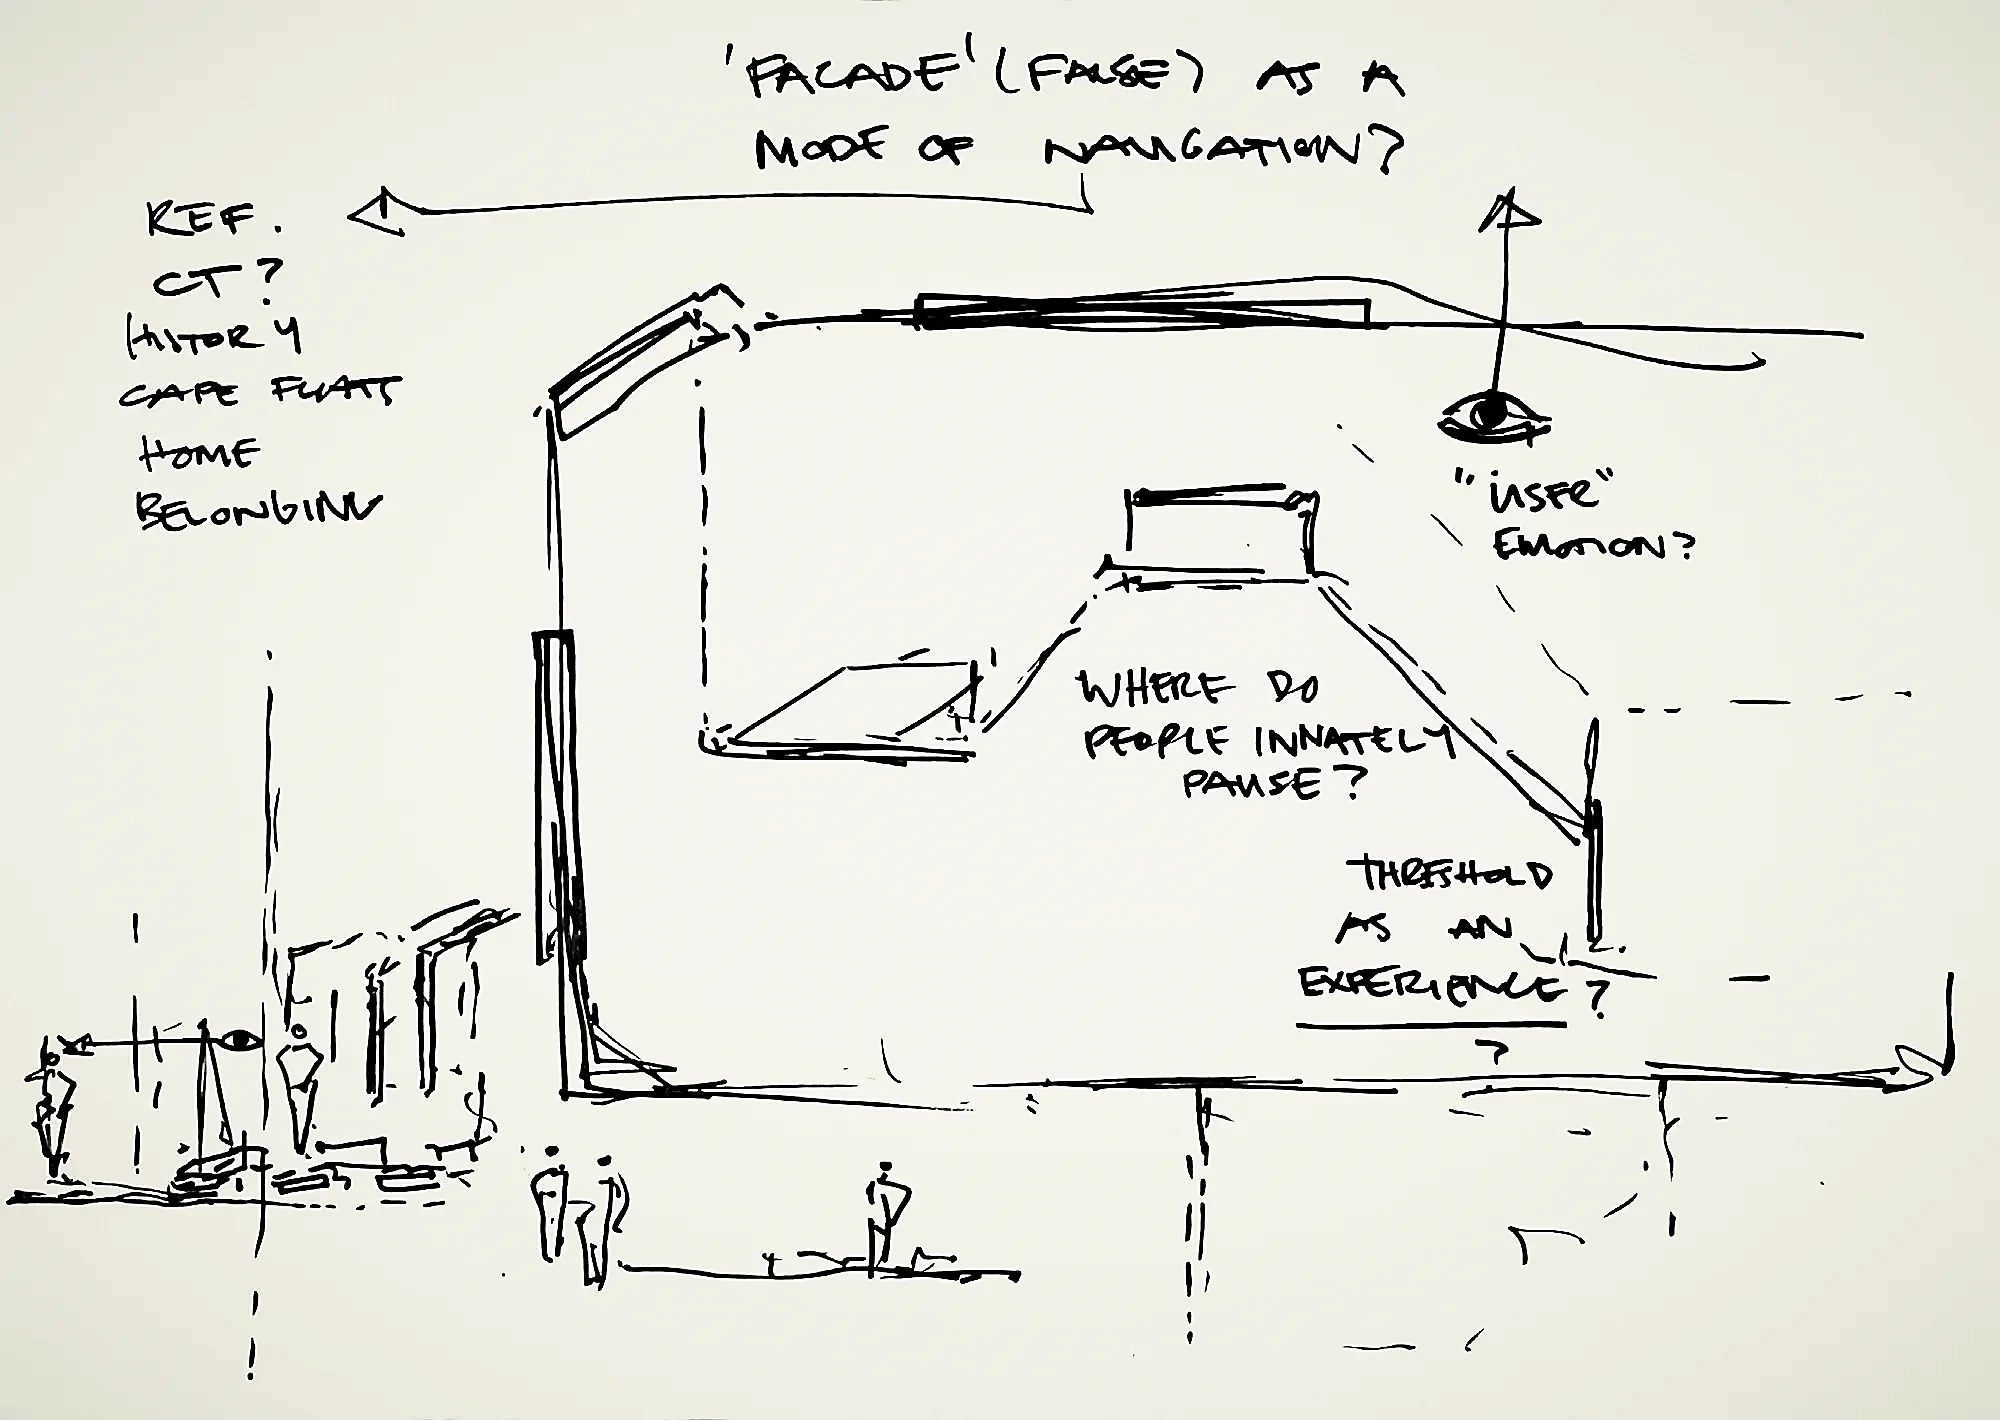 'FACADE' (FALSE) AS A
MODE OF NAVIGATION?
REF.
CT?
HISTORY
CAPE FLATS
HOME
BELONGING
"USER"
EMOTION?
WHERE DO
PEOPLE INNATELY
PAUSE?
THRESHOLD
AS AN
EXPERIENCE?
?